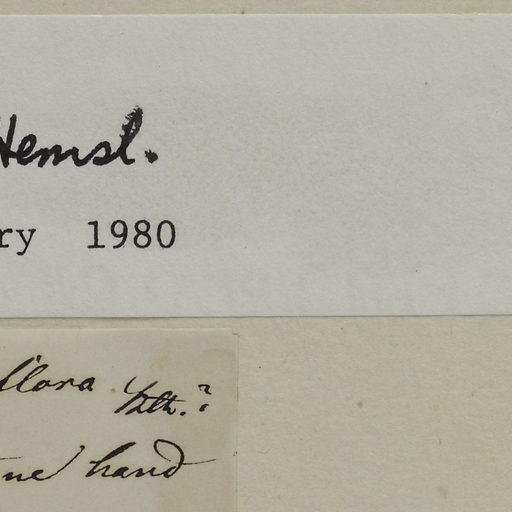 Hemsl.
ry 1980
llora Bth.?
ne hand